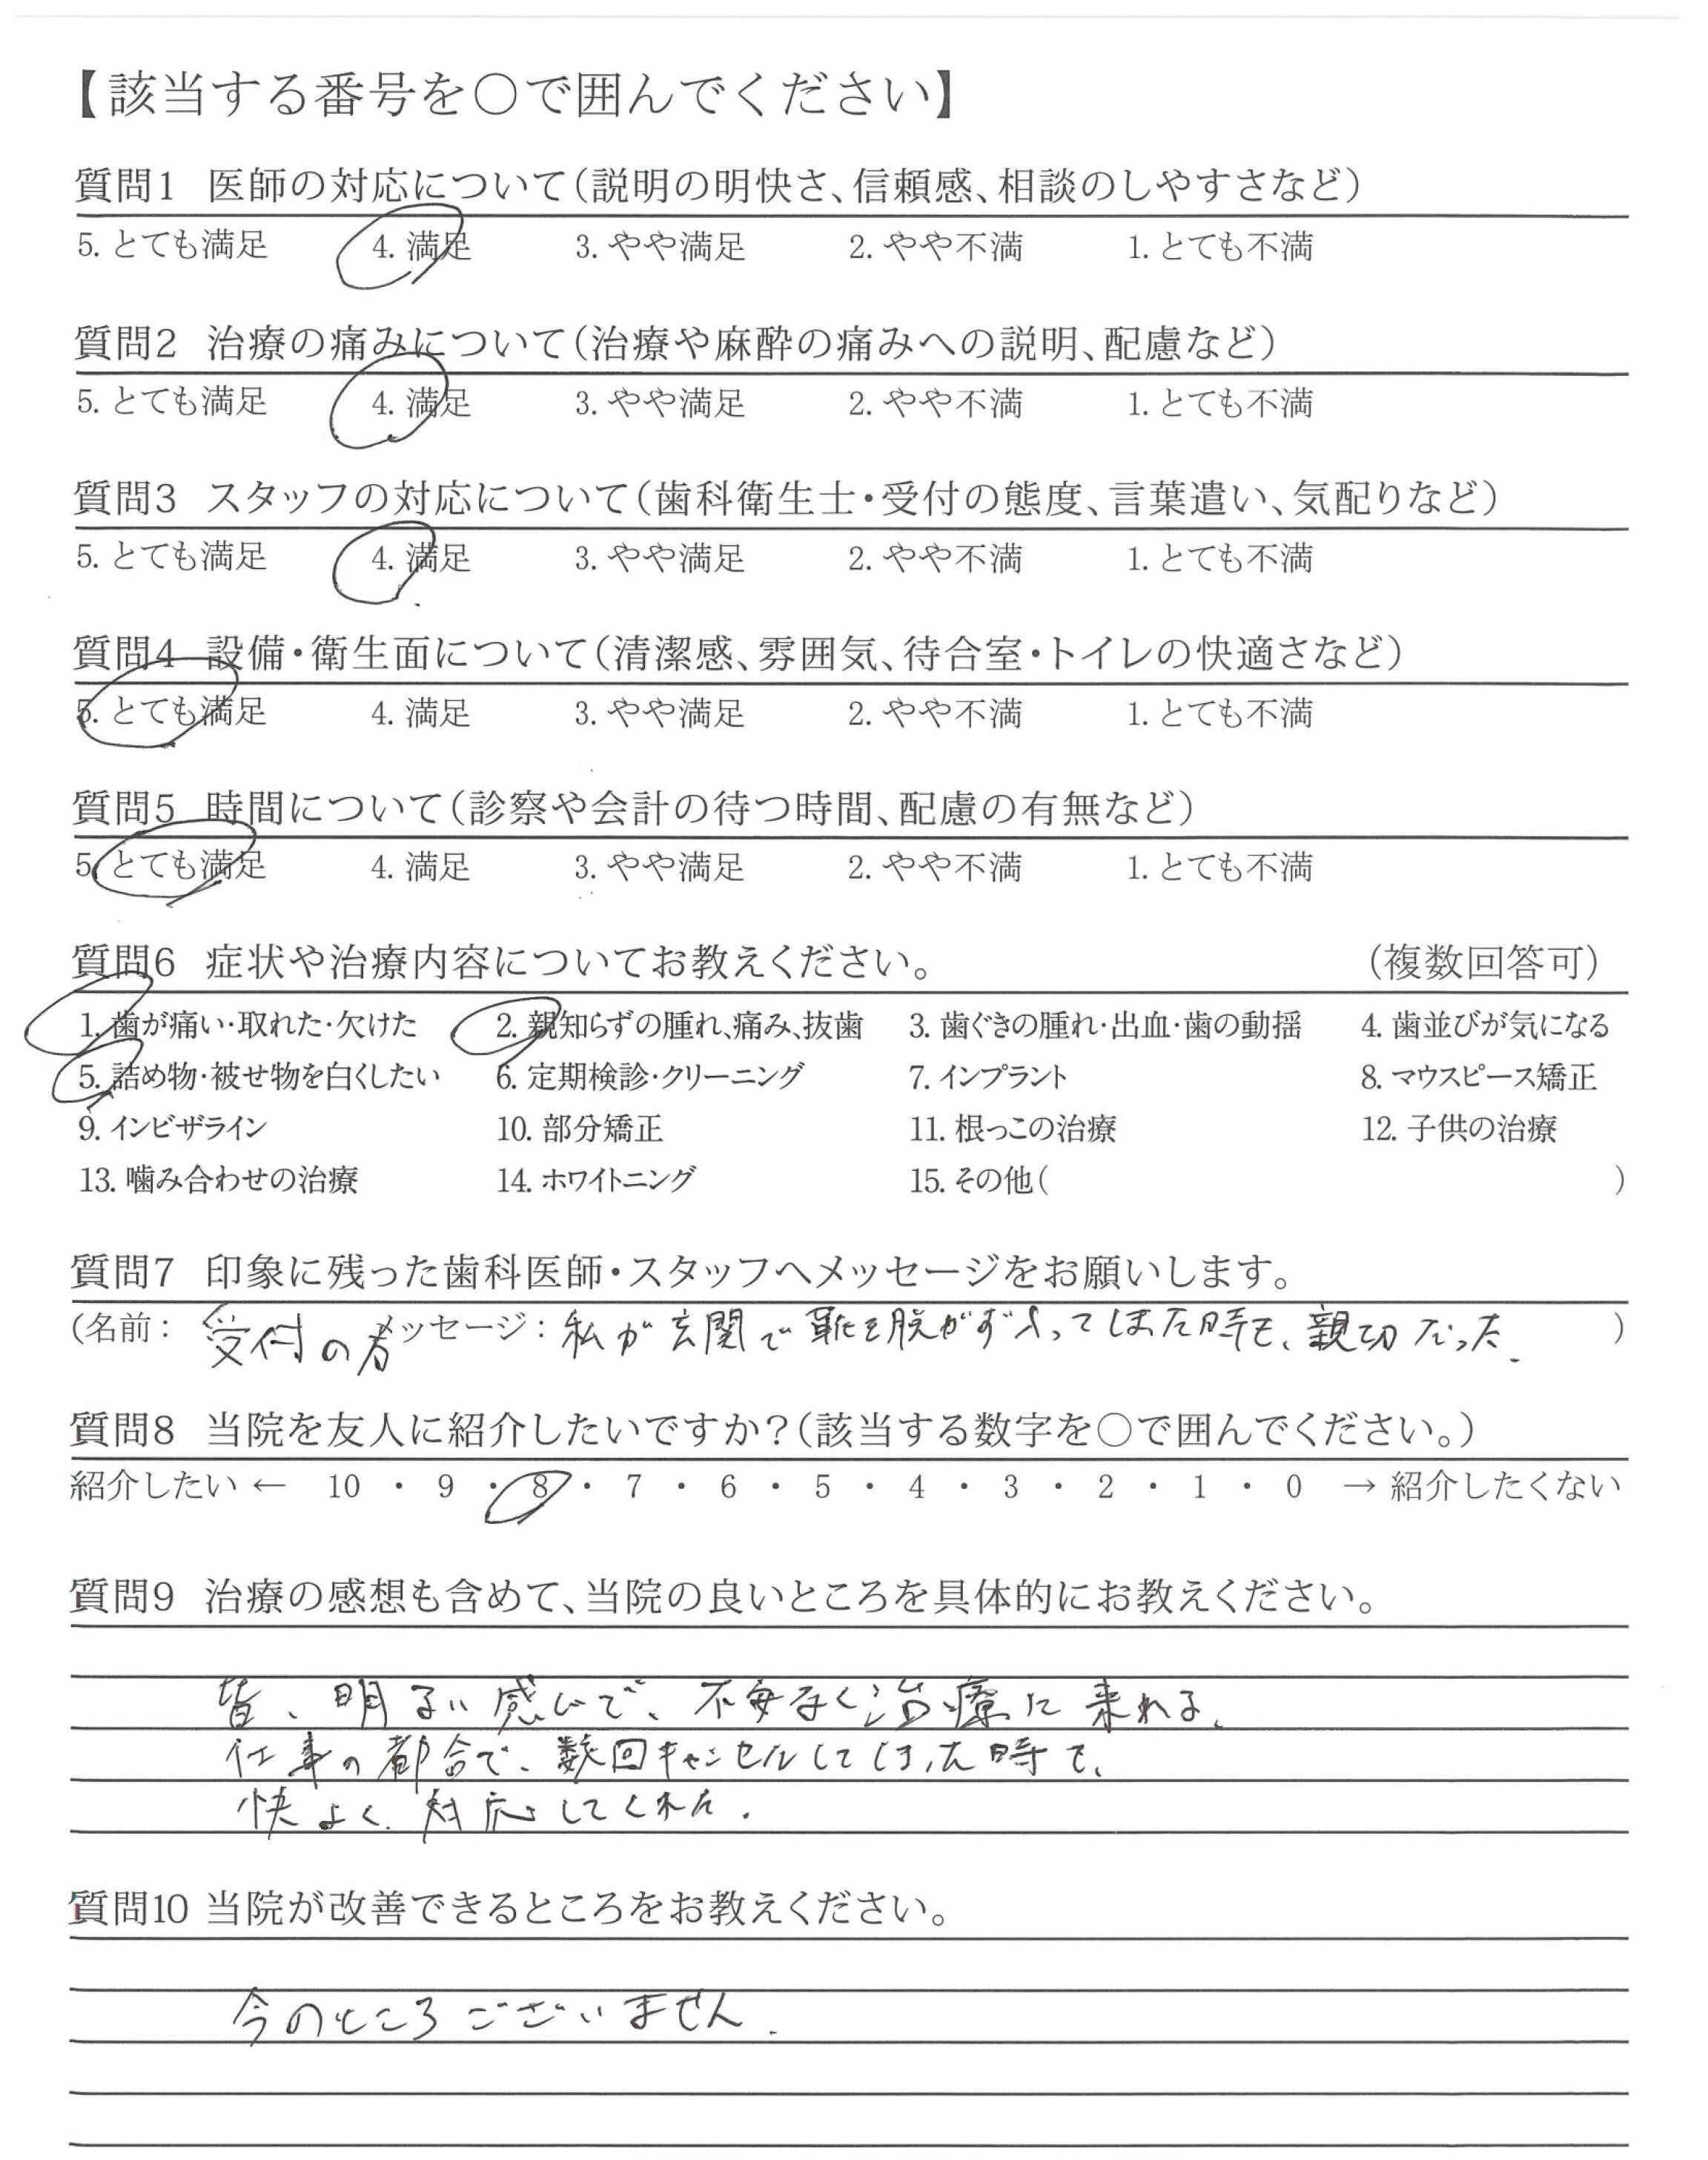 【該当する番号を○で囲んでください】
質問1 医師の対応について(説明の明快さ、信頼感、相談のしやすさなど)
5. とても満足 4. 満足 3. やや満足 2. やや不満 1. とても不満
質問2 治療の痛みについて(治療や麻酔の痛みへの説明、配慮など)
5. とても満足 4. 満足 3. やや満足 2. やや不満 1. とても不満
質問3 スタッフの対応について(歯科衛生士・受付の態度、言葉遣い、気配りなど)
5. とても満足 4. 満足 3. やや満足 2. やや不満 1. とても不満
質問4 設備・衛生面について(清潔感、雰囲気、待合室・トイレの快適さなど)
5. とても満足 4. 満足 3. やや満足 2. やや不満 1. とても不満
質問5 時間について(診察や会計の待つ時間、配慮の有無など)
5. とても満足 4. 満足 3. やや満足 2. やや不満 1. とても不満
質問6 症状や治療内容についてお教えください。 (複数回答可)
1. 歯が痛い・取れた・欠けた 2. 親知らずの腫れ、痛み、抜歯 3. 歯ぐきの腫れ・出血・歯の動揺 4. 歯並びが気になる
5. 詰め物・被せ物を白くしたい 6. 定期検診・クリーニング 7. インプラント 8. マウスピース矯正
9. インビザライン 10. 部分矯正 11. 根っこの治療 12. 子供の治療
13. 噛み合わせの治療 14. ホワイトニング 15. その他( )
質問7 印象に残った歯科医師・スタッフへメッセージをお願いします。
(名前: 受付の方 メッセージ: 私が玄関で靴を脱がず入ってしまった時も、親切だった. )
質問8 当院を友人に紹介したいですか?(該当する数字を○で囲んでください。)
紹介したい ← 10 ・ 9 ・ 8 ・ 7 ・ 6 ・ 5 ・ 4 ・ 3 ・ 2 ・ 1 ・ 0 → 紹介したくない
質問9 治療の感想も含めて、当院の良いところを具体的にお教えください。
皆、明るい感じで、不安なく治療に来れる。
仕事の都合で、数回キャンセルしてしまった時も、
快よく対応してくれた.
質問10 当院が改善できるところをお教えください。
今のところございません.